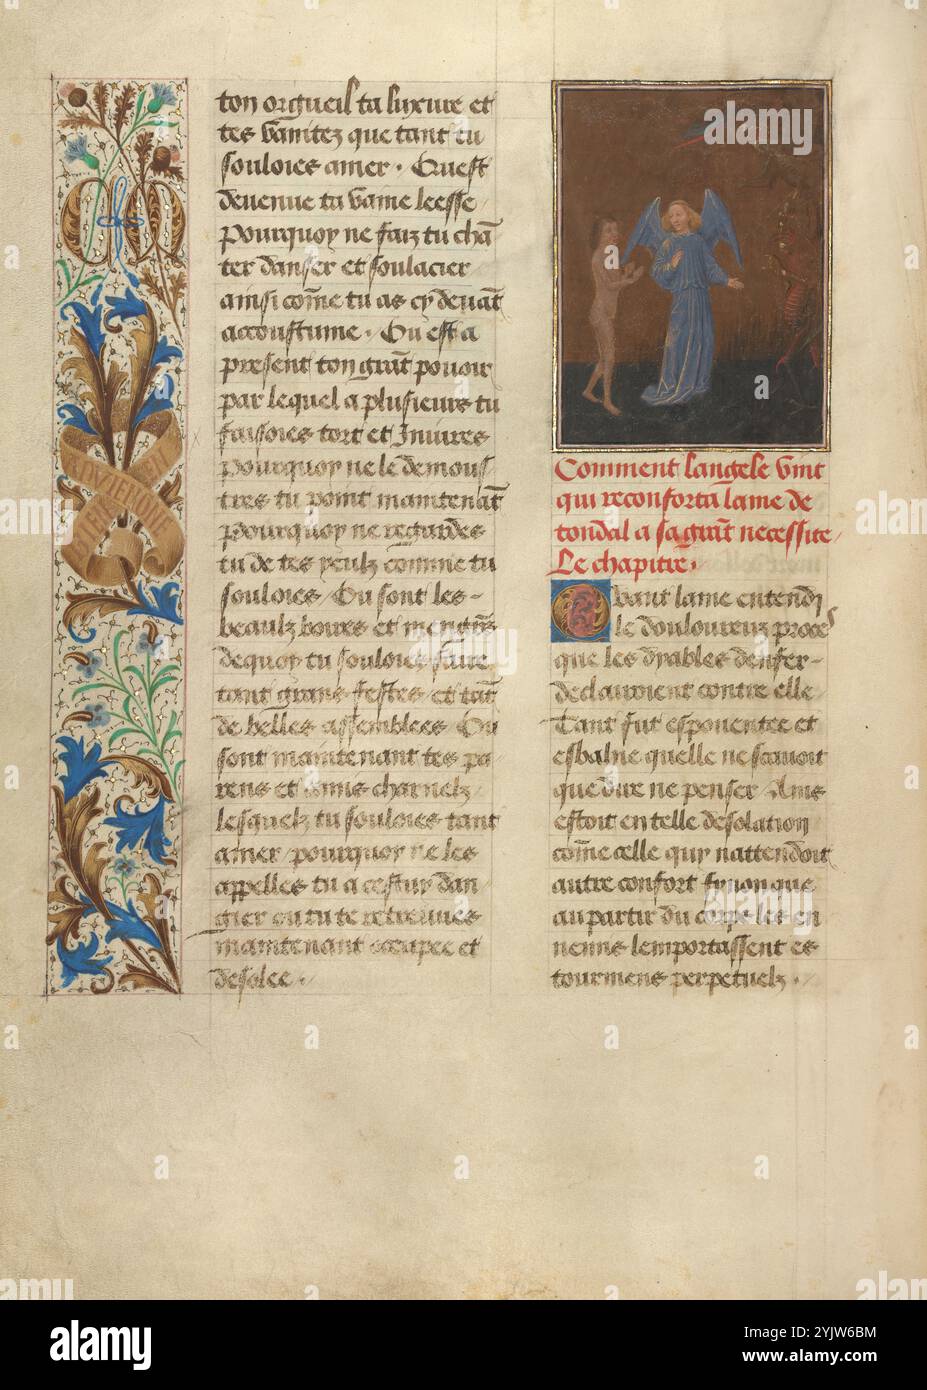 ton orgueil ta luxure et
tes vanitez que tant tu
souloies amer. Quest
devenue ta vaine leesse
Pourquoy ne faiz tu chā
ter danser et soulacier
ainsi cōme tu as cy devāt
accoustume. Ou est a
present ton grāt povoir
par lequel a plusieurs tu
faisoies tort et Iniures
Pourquoy ne le demous
tres tu point maintenāt
Pourquoy ne regardes
tu de tes yeulx comme tu
souloies Ou sont les
dequoy tu souloies faire
tant grans festes et tāt
de belles assemblees Ou
sont maintenant tes pa
rens et amis charnelz
lesquelz tu souloies tant
amer pourquoy ne les
appelles tu a cestuy dan
gier ou tu te retreuves
maintenant et
desolee.
Comment langele vint
qui reconforta lame de
tondal a sa grāt necessite
Le chapitre.
Quant lame entendi
le douloureux
que les dyables denfer
declauoient contre elle
Tant fut espouentee et
esbahie quelle ne scauoit
que dire ne penser Ains
estoit en telle desolation
cōme celle quy nattendoit
autre confort synon que
au partir du corps les en
nemis lemportassent es
tourmens perpetuelz.
a
alamy
alamy
Image ID: 2YJW6BM
www.alamy.com